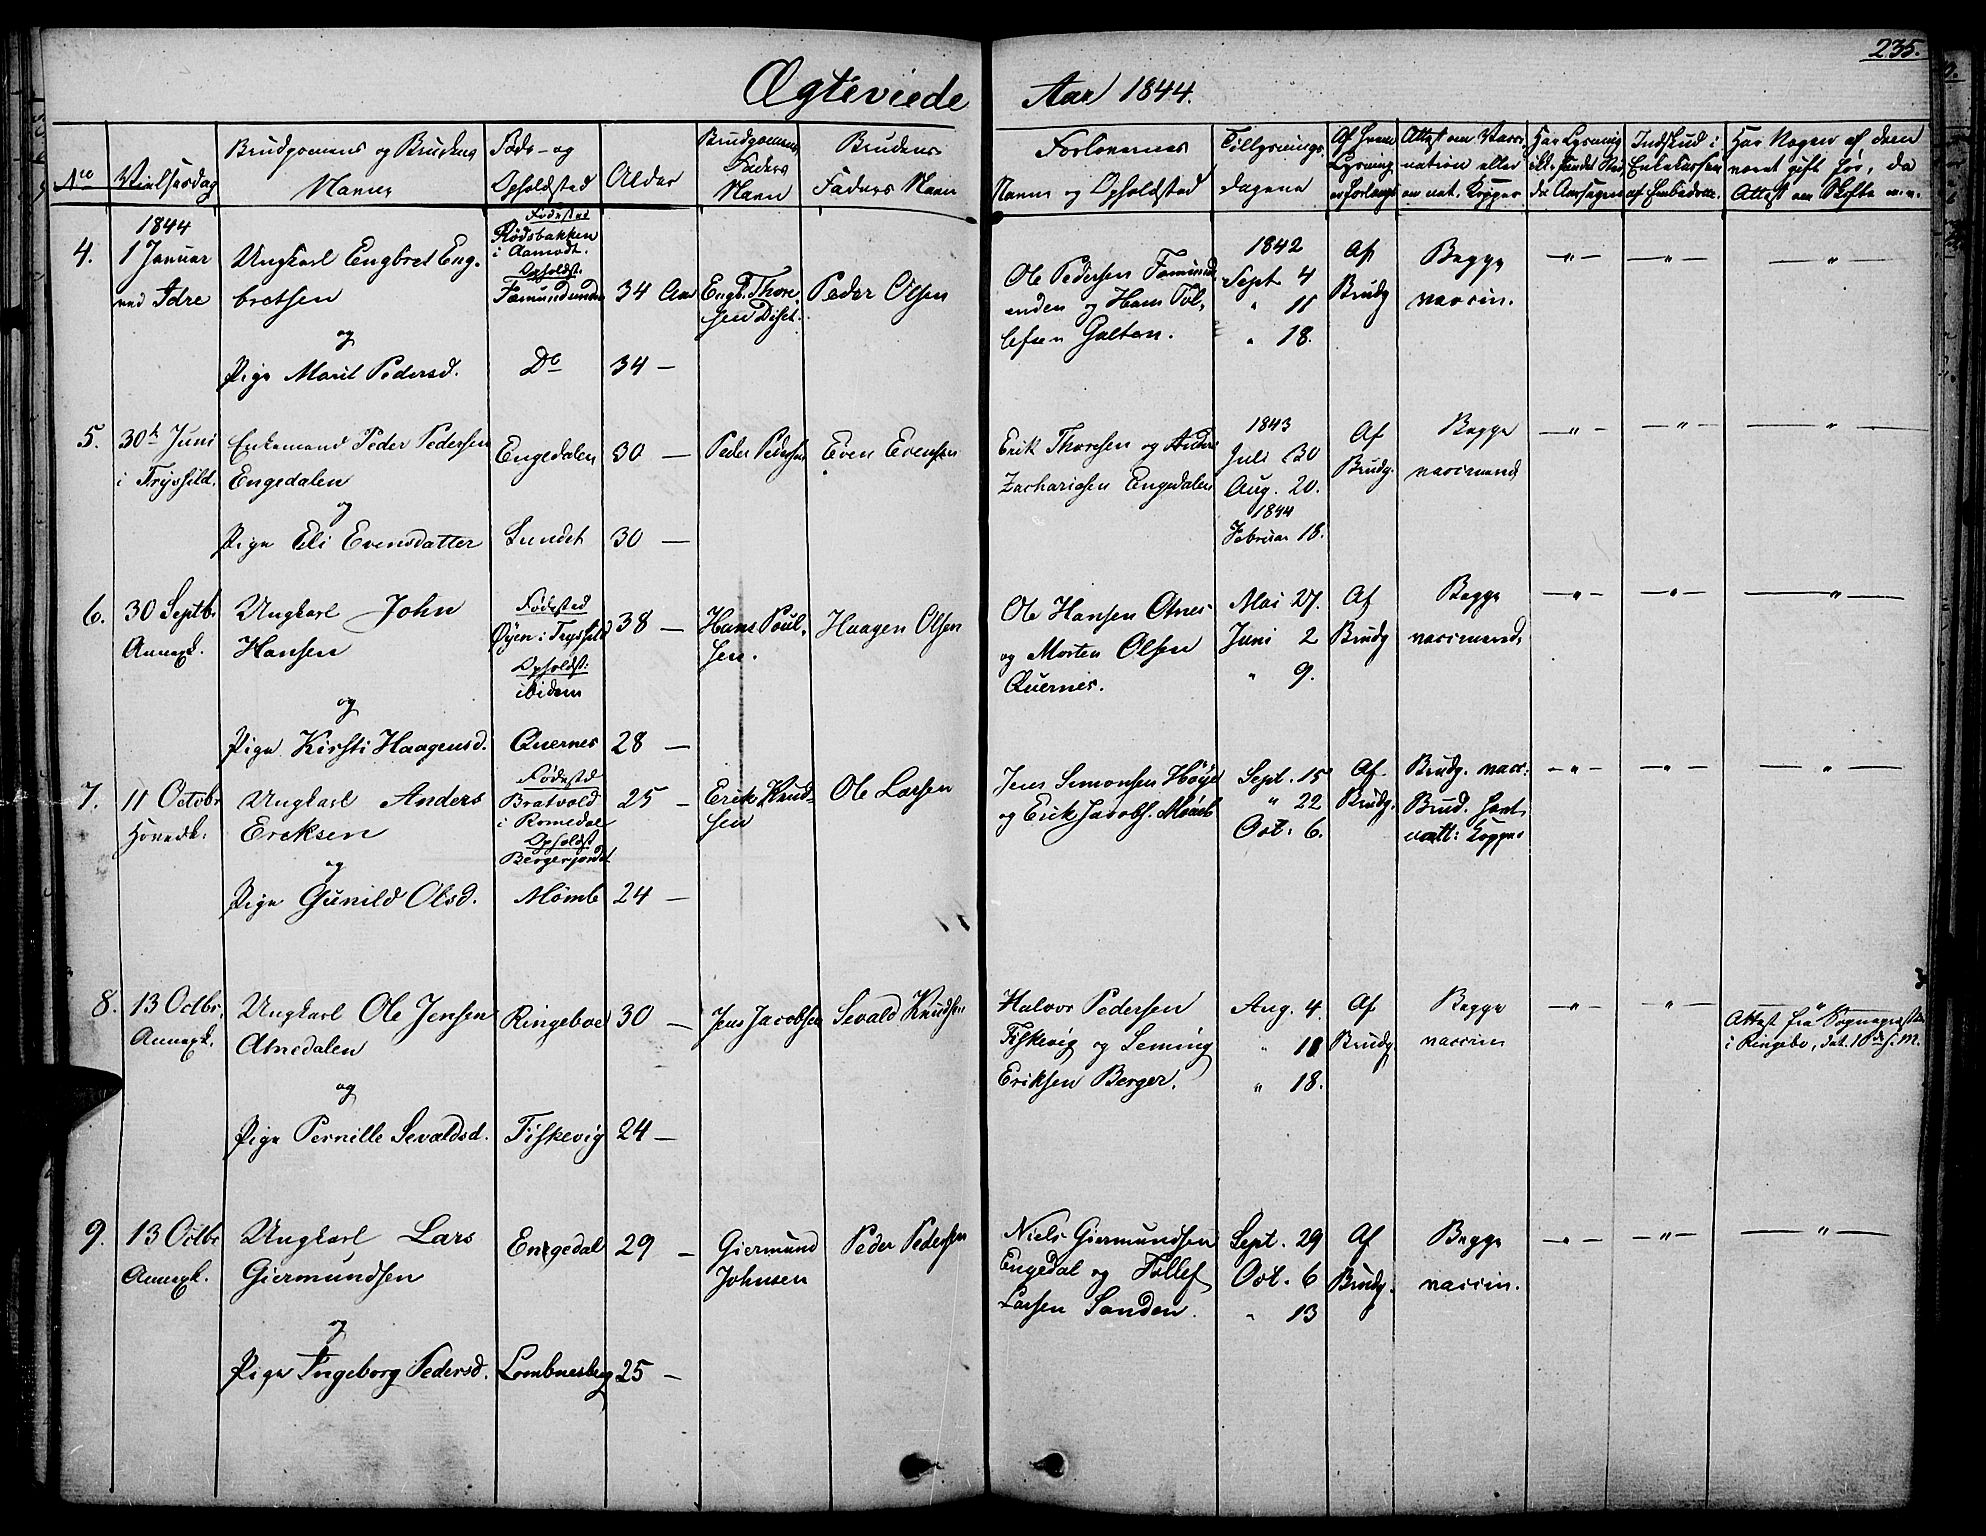 235.
Ægteviede Aar 1844.
No Vielsesdag Brudgommens og Brudens Navne Føde- og Opholdsted Alder Brudgommens Faders Navn Brudens Faders Navn
Forlovernes Navne og Opholdsted Tillysnings dagene Af hvem Lysning er forlangt Attest om Vacci-
nation eller om nat. Kopper Har Lysning ikke fundet Sted, da Aarsagen Indskud i Enkekassen af Embedsm. Har Nogen af dem været gift før, da Attest om Skifte m.m.
1844
4. 1 Januar
ved Idre
Ungkarl Engbret Eng-
bretsen
og
Pige Marit Pedersd.
Fødested
Rødsbakken
i Aamodt.
Opholdst:
Fæmundenden
Do
34 Aar
34 —
Engb. Thore-
sen Diset.
Peder Olsen
Ole Pedersen Fæmund
enden og Hans Tol-
lefsen Galten.
1842
Sept. 4
" 11
" 18.
Af
Brudg
Begge
vaccin.
— " —
— " —
— " —
5. 30te Juni
i Trysild.
Enkemand Peder Pedersen
Engedalen
og
Pige Eli Evensdatter
Engedalen
Sundet
30 —
30 —
Peder Pedersen
Even Evensen
Erik Thoresen og Anders
Zachariasen Engedalen
1843
Juli 30
Aug. 20.
1844
Februar 18.
Af
Brudg.
Begge
vaccinerede
— " —
— " —
— " —
6. 30 Septbr
Annexk.
Ungkarl John
Hansen
og
Pige Kirsti Haagensd.
Fødested
Øyen i Trysild
Opholdst:
ibidem
Quernes
38 —
28 —
Hans Poul-
sen.
Haagen Olsen
Ole Hansen Otnes
og Morten Olsen
Quernes.
Mai 27.
Juni 2
" 9.
Af
Brudg
Begge
vaccinerede
— " —
— " —
— " —
7. 11 Octobr
Hovedk:
Ungkarl Anders
Ericksen
og
Pige Gunild Olsd.
Fødested
Bratvold
i Romedal
Opholdst
Bergerjordet
Mömb
25 —
24 —
Erick Knud-
sen
Ole Larsen
Jens Simonsen Höye
og Erick Jacobs. Mömb
Sept. 15
" 22
Oct: 6.
Af
Brudg.
Brudg. vacc:
Brud. havt
natt: Kopper
— " —
— " —
— " —
8. 13 Octbr.
Annexk.
Ungkarl Ole Jensen
Atnedalen
og
Pige Pernille Sevaldsd.
Ringeboe
Fiskevig
30 —
24 —
Jens Jacobsen
Sevald Knudsen
Halvor Pedersen
Fiskevig og Seming
Eriksen Berger.
Aug. 4
" 11
" 18.
Af
Brudg.
Begge
vaccin
— " —
— " —
— " —
Attest fra Sognepræsten
i Ringebo, dat. 1ste s. M.
9. 13 Octbr
Annexk.
Ungkarl Lars
Giermundsen
og
Pige Ingeborg Pedersd.
Engedal
Lombnesberg
29 —
25 —
Giermund
Johnsen
Peder Pedersen
Niels Giermundsen
Engedal og Tollef
Larsen Sanden.
Sept. 29
Oct. 6
" 13
Af
Brudg.
Begge
vaccin.
— " —
— " —
— " —